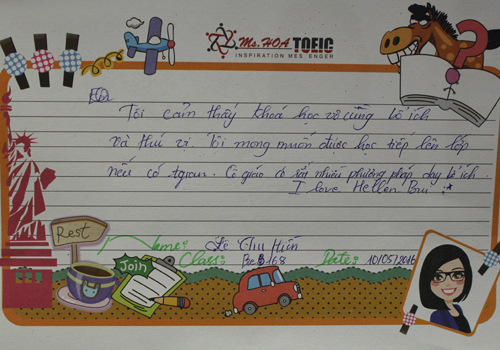 Ms.HOA TOEIC
INSPIRATION MESSENGER
Tôi cảm thấy khoá học vô cùng bổ ích
và thú vị. Tôi mong muốn được học tiếp lên lớp
nếu có tgian. Cô giáo có rất nhiều phương pháp dạy bổ ích.
I love Hellen Bui :*
Rest
Name: Lê Thu Hiền
Class: Pre 168
Date: 10/05/2016
Join